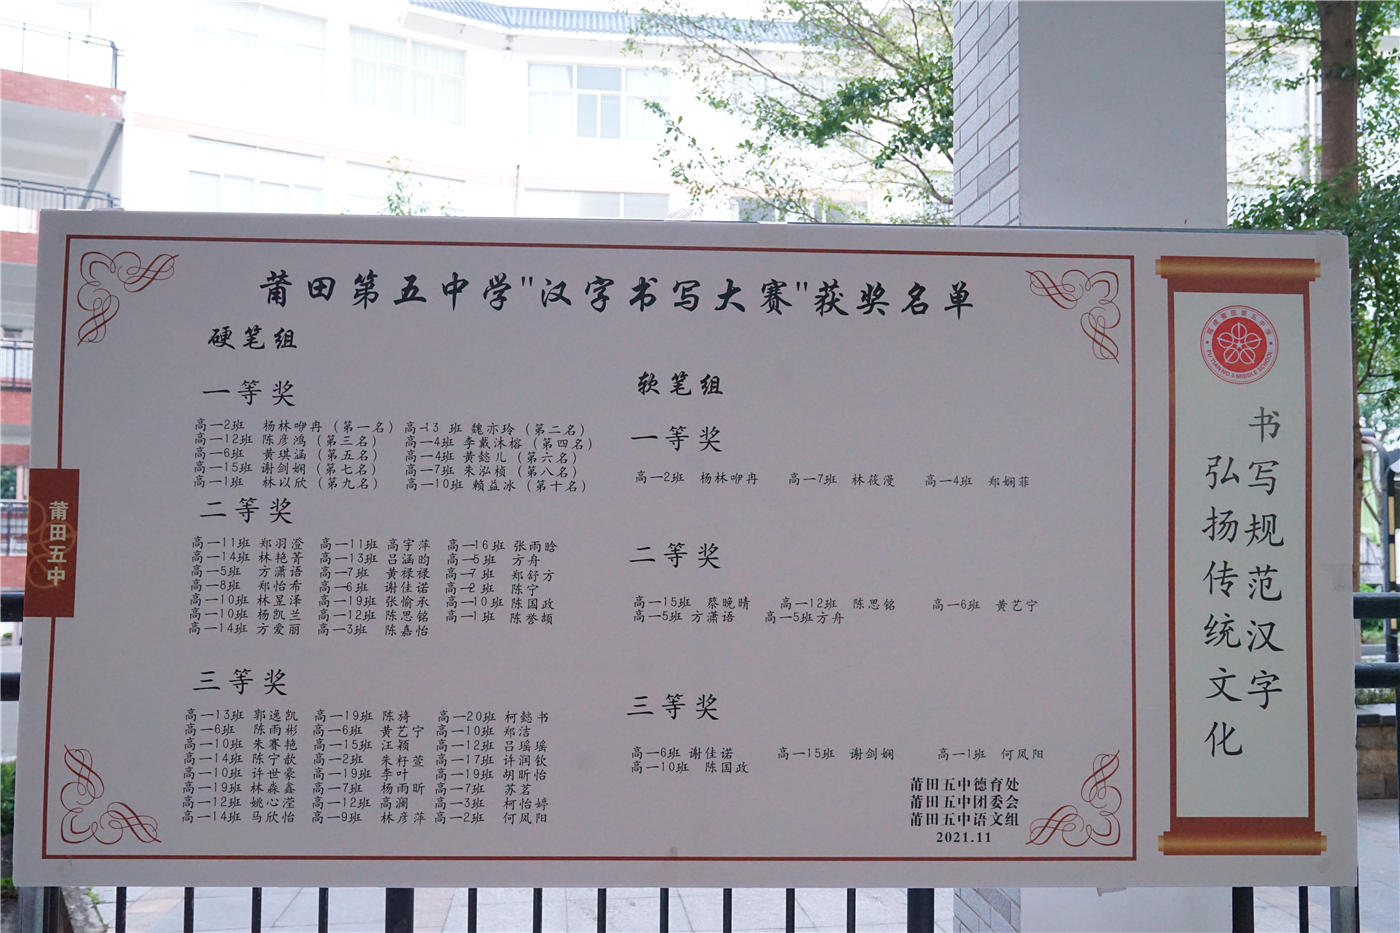 莆田第五中学"汉字书写大赛"获奖名单
硬笔组
一等奖
高一2班 杨林咿冉（第一名） 高一13 班 魏亦玲（第二名）
高一12班 陈彦鸿（第三名） 高一4班 李戴沐榕（第四名）
高一6班 黄琪涵（第五名） 高一4班 黄懿儿（第六名）
高一15班 谢剑娴（第七名） 高一7班 朱泓桢（第八名）
高一1班 林以欣（第九名） 高一10班 赖益冰（第十名）
二等奖
高一11班 郑羽澄 高一11班 高宇萍 高一16班 张雨晗
高一14班 林艳菁 高一13班 吕涵昀 高一5班 方舟
高一5班 方潇语 高一7班 黄禄禄 高一7班 郑舒方
高一8班 郑怡希 高一6班 谢佳诺 高一2班 陈宁
高一10班 林昱泽 高一19班 张愉承 高一10班 陈国政
高一10班 杨凯兰 高一12班 陈思铭 高一1班 陈誉颉
高一14班 方爱丽 高一3班 陈嘉怡
三等奖
高一13班 郭逸凯 高一19班 陈旖 高一20班 柯懿书
高一6班 陈雨彬 高一6班 黄艺宁 高一10班 郑洁
高一10班 朱赛艳 高一15班 汪颖 高一12班 吕瑶瑶
高一14班 陈宁歆 高一2班 朱籽萱 高一17班 许润钦
高一10班 许世豪 高一19班 李叶 高一19班 胡昕怡
高一19班 林淼鑫 高一7班 杨雨昕 高一7班 苏茗
高一12班 姚心滢 高一12班 高澜 高一3班 柯怡婷
高一14班 马欣怡 高一9班 林彦萍 高一2班 何凤阳
软笔组
一等奖
高一2班 杨林咿冉 高一7班 林筱漫 高一4班 郑娴菲
二等奖
高一15班 蔡晚晴 高一12班 陈思铭 高一6班 黄艺宁
高一5班 方潇语 高一5班方舟
三等奖
高一6班 谢佳诺 高一15班 谢剑娴 高一1班 何凤阳
高一10班 陈国政
莆田五中德育处
莆田五中团委会
莆田五中语文组
2021.11
莆田五中
福建莆田第五中学
PUTIAN NO.5 MIDDLE SCHOOL
书写规范汉字
弘扬传统文化